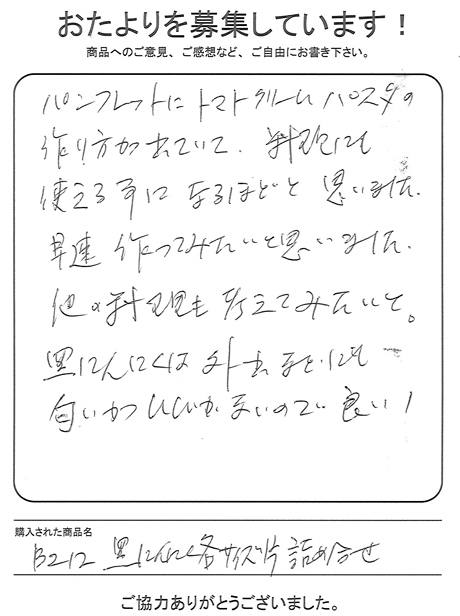 おたよりを募集しています！
商品へのご意見、ご感想など、ご自由にお書き下さい。
パンフレットにトマトクリームパスタの
作り方が出ていて、料理にも
使える事になるほどと思いました。
早速作ってみたいと思いました。
他の料理も考えてみたいと。
黒にんにくは外出まえにも
匂いがつかないので良い！
購入された商品名
B212 黒にんにく各サイズ片詰め合せ
ご協力ありがとうございました。